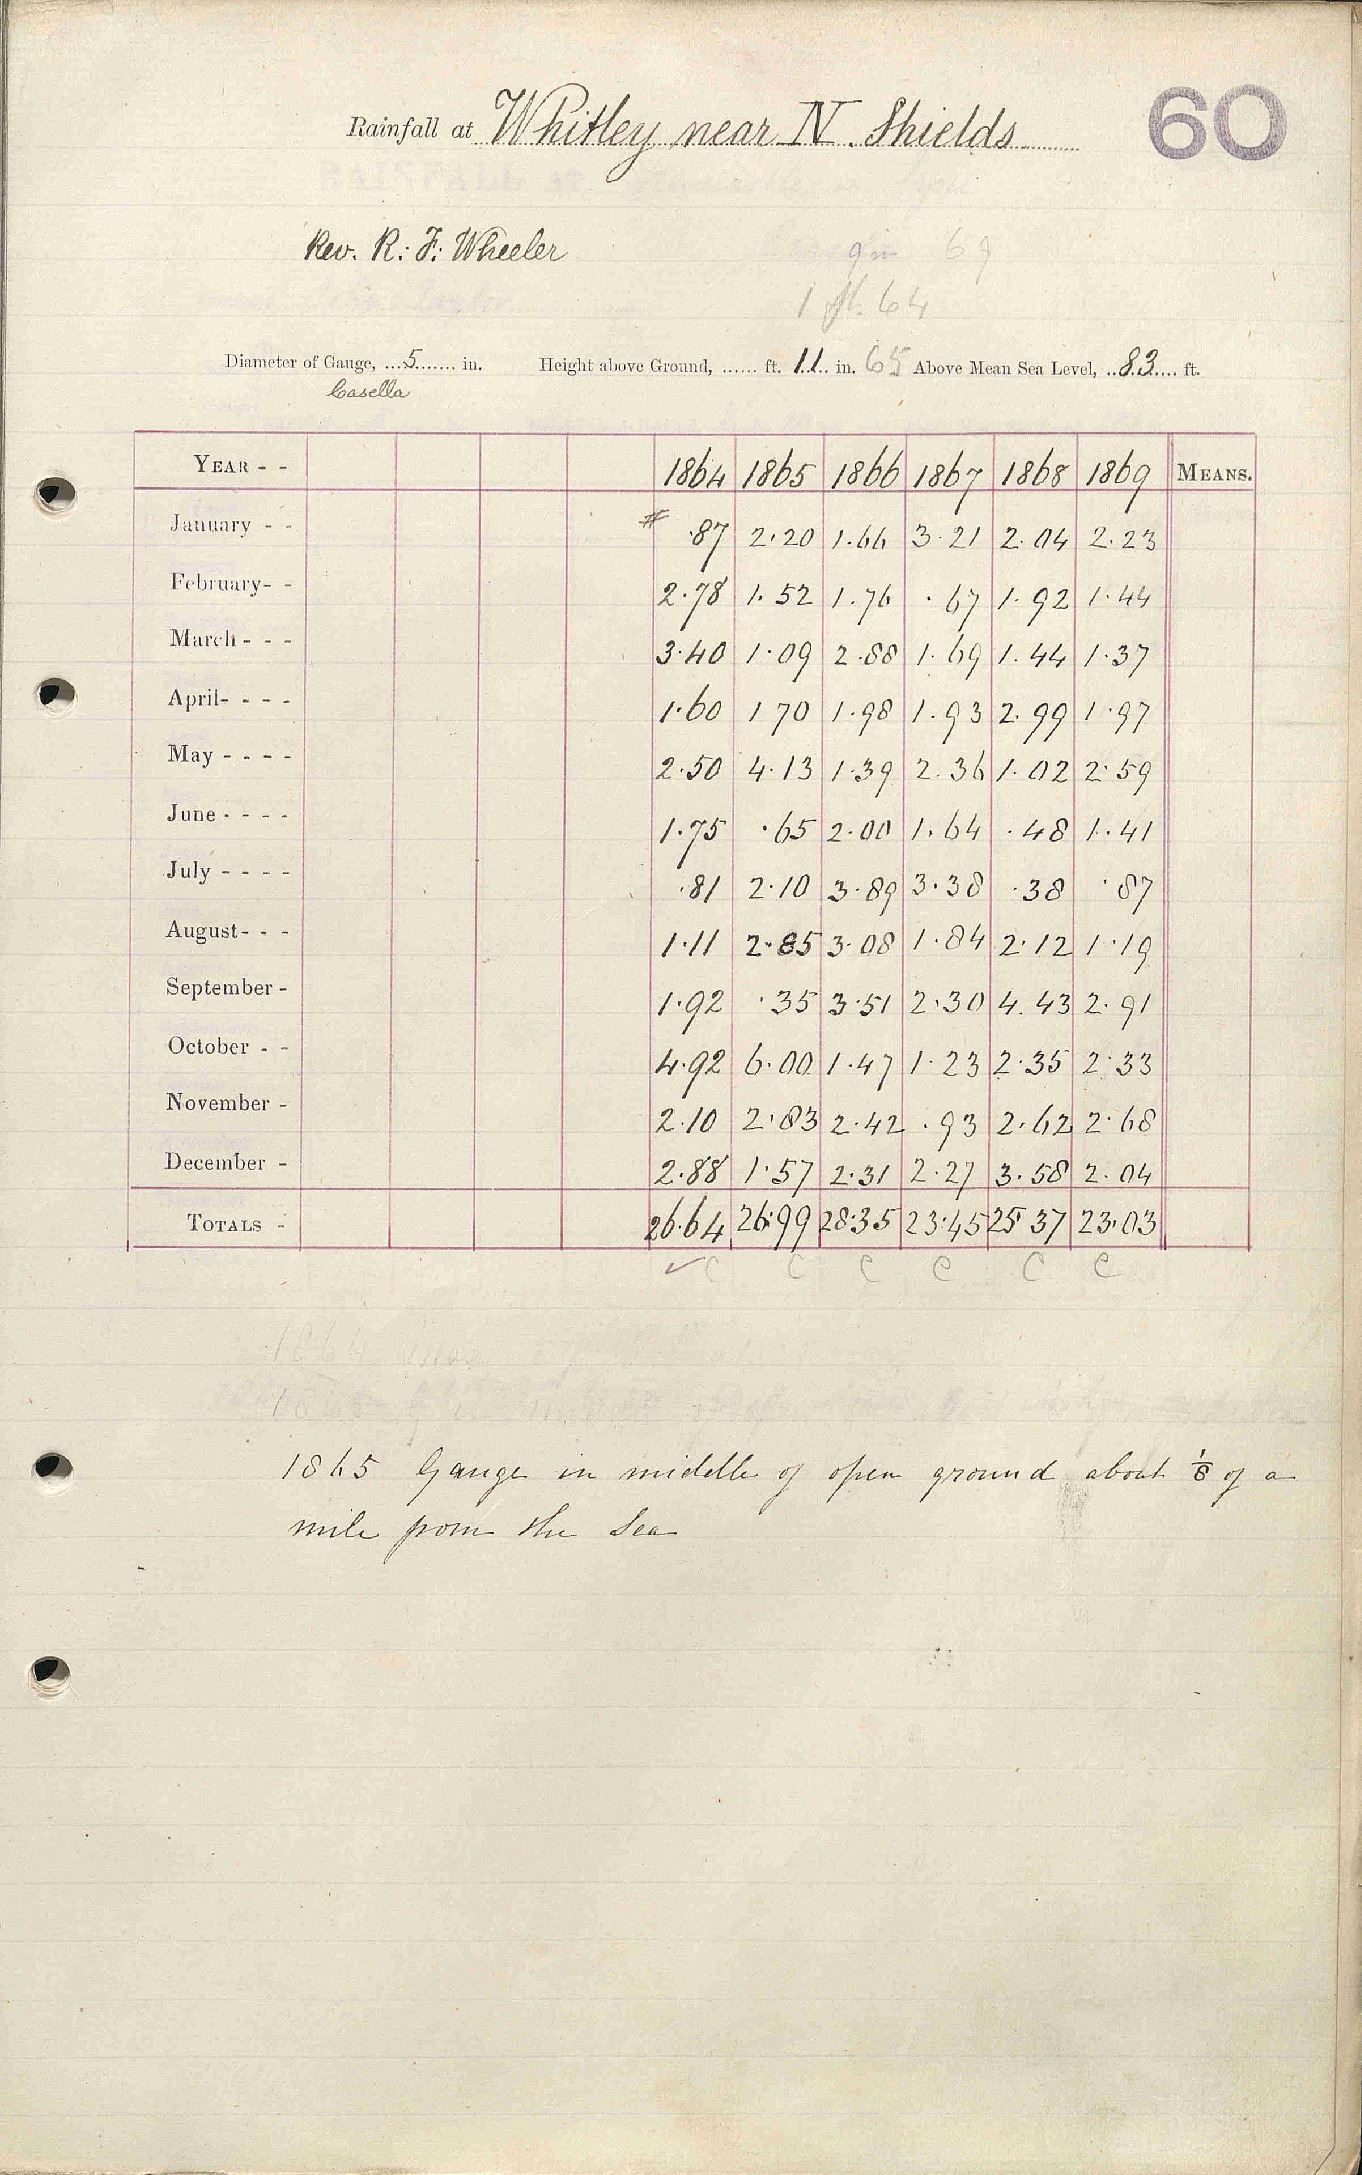 Rainfall at Whitley near N. Shields 60
Rev. R. F. Wheeler
9 in 69
1 ft. 64
Diameter of Gauge, ...5....... in. Height above Ground, ...... ft. 11 in. 65 Above Mean Sea Level, ..83.... ft.
Casella
YEAR - - 1864 1865 1866 1867 1868 1869 MEANS.
January - - # .87 2.20 1.66 3.21 2.04 2.23
February- - 2.78 1.52 1.76 .67 1.92 1.44
March - - - 3.40 1.09 2.88 1.69 1.44 1.37
April- - - - 1.60 1 70 1.98 1.93 2.99 1.97
May - - - - 2.50 4.13 1.39 2.36 1.02 2.59
June - - - - 1.75 .65 2.00 1.64 .48 1.41
July - - - - .81 2.10 3.89 3.38 .38 .87
August- - - 1.11 2.85 3.08 1.84 2.12 1.19
September - 1.92 .35 3.51 2.30 4.43 2.91
October - - 4.92 6.00 1.47 1.23 2.35 2.33
November - 2.10 2.83 2.42 .93 2.62 2.68
December - 2.88 1.57 2.31 2.27 3.58 2.04
TOTALS - 26.64 26.99 28.35 23.45 25.37 23.03
✓ C C C C C C
1864
1865
1865 Gauge in middle of open ground about 1/8 of a
mile from the Sea